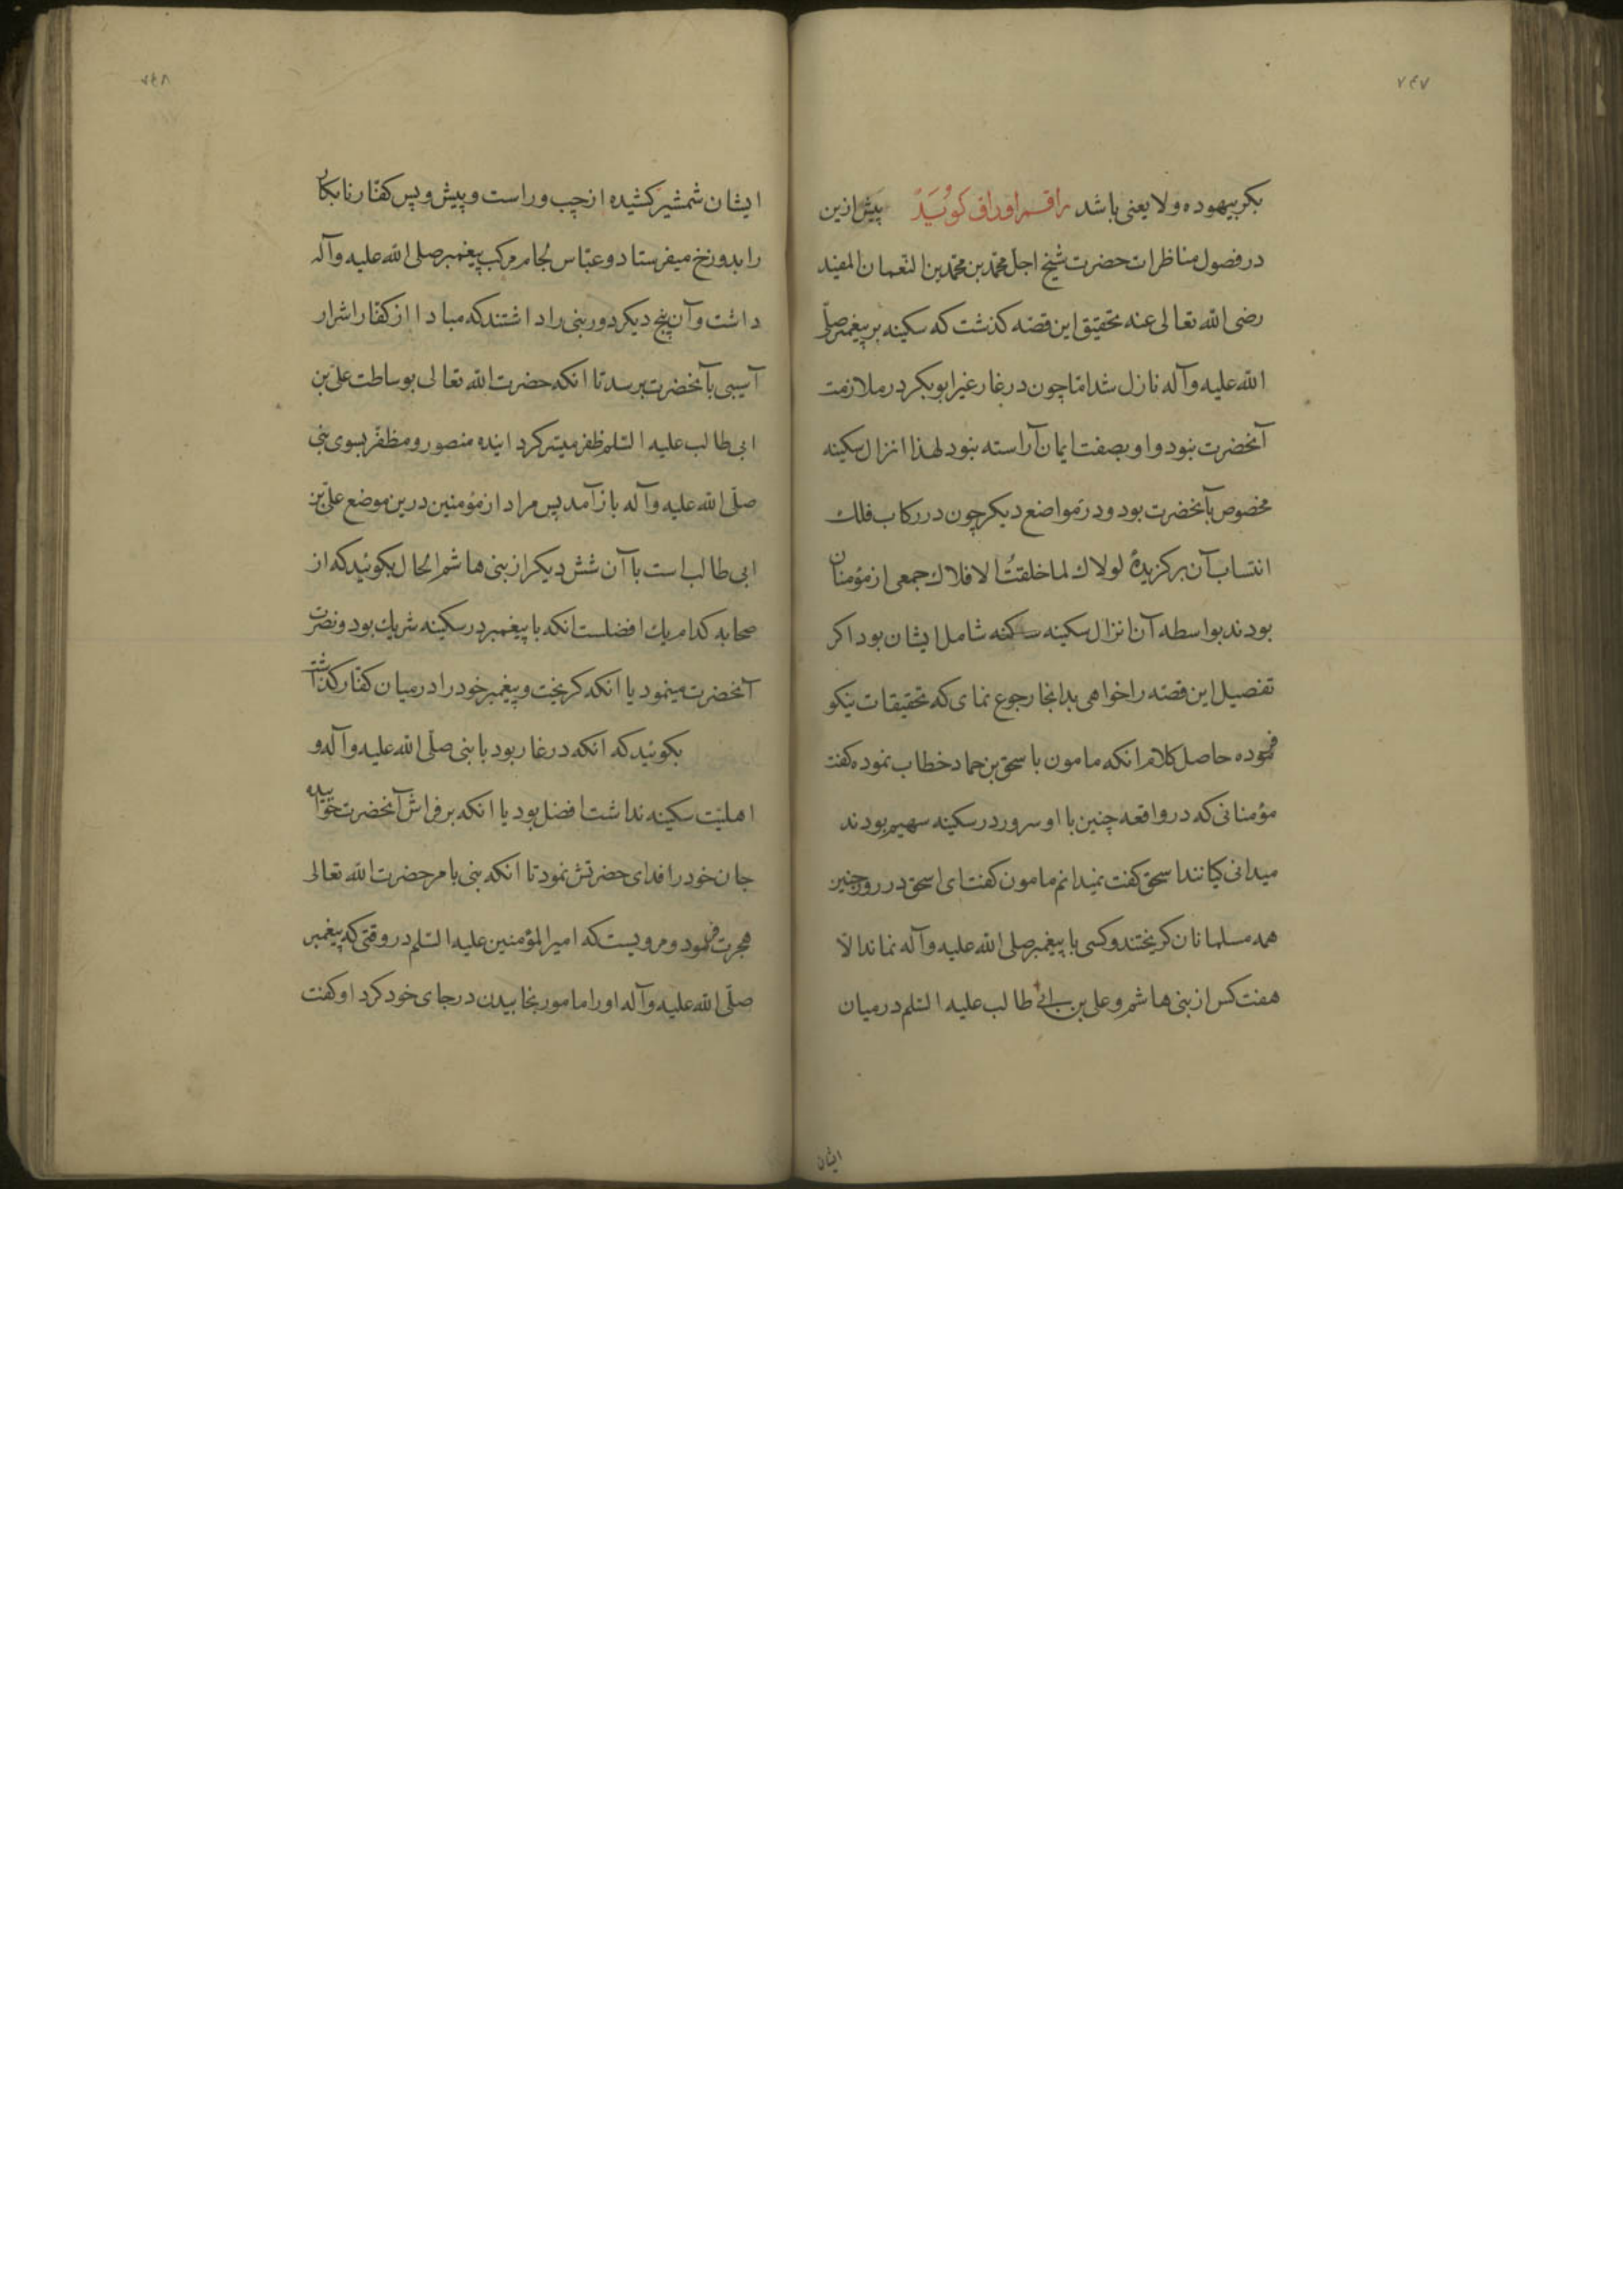 ۷۴۷
بکر بیهوده و لا یعنی باشد راقم اوراق کوید پیش ازین
در فصول مناظرات حضرت شیخ اجل محمّد بن محمّد بن النّعمان المفید
رضی الله تعالی عنه تحقیق این قصّه کذشت که سکینه بر پیغمبر صلّی
الله علیه وآله نازل شد امّا چون در غار غیر ابو بکر در ملازمت
آنحضرت نبود و او بصفت ایمان آراسته نبود لهذا انزال سکینه
مخصوص بآنحضرت بود و در مواضع دیکر چون در رکاب فلک
انتساب آن برکزیدهٔ لولاک لما خلقتُ الافلاک جمعی از مؤمنان
بودند بواسطه آن انزال سکینه شامل ایشان بود اکر
تفصیل این قصّه را خواهی بدانجا رجوع نمای که تحقیقات نیکو
فرموده حاصل کلام انکه مامون با سحق بن حماد خطاب نموده کفت
مؤمنانی که در واقعه چنین با او سرور در سکینه سهیم بودند
میدانی کیانند اسحق کفت نمیدانم مامون کفت ای اسحق در روز حنین
همه مسلمانان کریختند و کسی با پیغمبر صلی الله علیه وآله نماند الّا
هفت کس از بنی هاشم و علی بن ابی طالب علیه السّلم در میان
ایشان
۷۴۸
ایشان شمشیر کشیده از چپ و راست و پیش و پس کفّار نابکار
را بدوزخ میفرستاد و عبّاس لجام مرکب پیغمبر صلی الله علیه وآله
داشت و آن پنج دیکر دور بنی را داشتند که مبادا از کفّار اشرار
آسیبی بآنحضرت برسد تا انکه حضرت الله تعالی بوساطت علیّ بن
ابی طالب علیه السّلم ظفر میسّر کرد اینده منصور و مظفّر بسوی بنی
صلّی الله علیه وآله باز آمد پس مراد از مؤمنین درین موضع علیّ بن
ابی طالب است با آن شش دیکر از بنی هاشم الحال بکوئید که از
صحابه کدام یک افضلست انکه با پیغمبر در سکینه شریک بود و نصرت
آنحضرت مینمود یا انکه کریخت و پیغمبر خود را در میان کفّار کذاشت
بکوئید که انکه در غار بود با بنی صلّی الله علیه وآله و
اهلیّت سکینه نداشت افضل بود یا انکه بر فراش آنحضرت خوابیده
جان خود را فدای حضرتش نمود تا انکه بنی بامر حضرت الله تعالی
هجرت فرمود و مرویست که امیر المؤمنین علیه السّلم در وقتی که پیغمبر
صلّی الله علیه وآله او را مامور بخابیدن در جای خود کرد او کفت